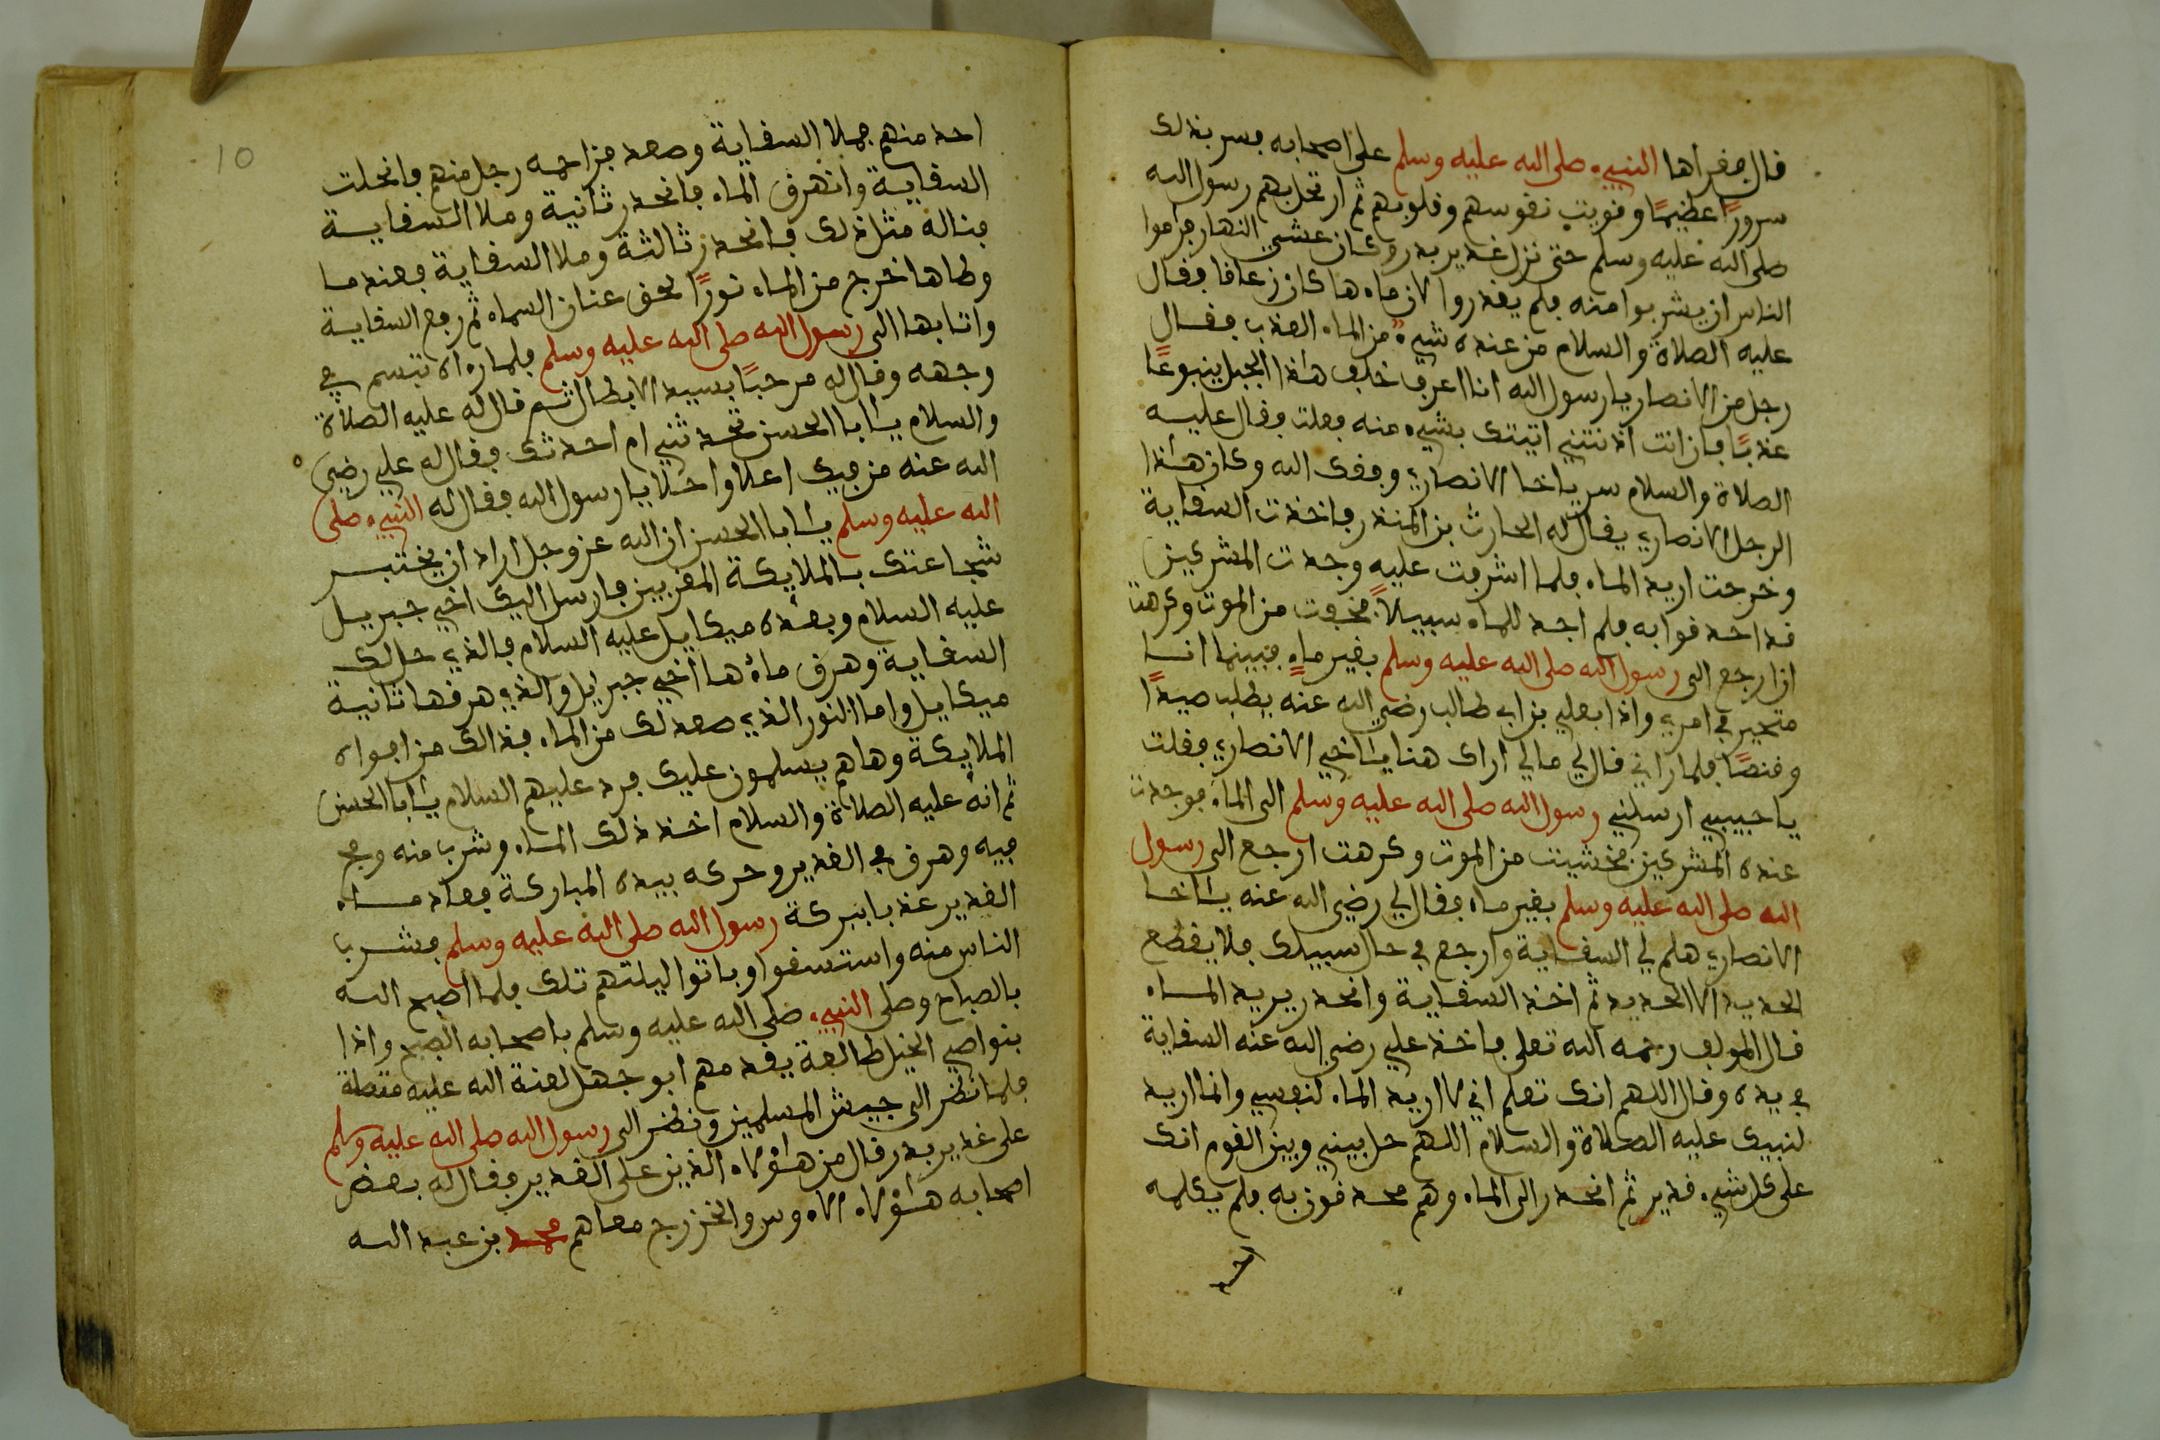 قال فقراها النبيء صلى الله عليه وسلم على اصحابه فسر بذلك
سرورًا عظيمًا وقويت نفوسهم وقلوبهم ثم ارتحل بهم رسول الله
صلى الله عليه وسلم حتى نزل غدير بدر وكان عشي النهار فراموا
الناس ان يشربوا منه فلم يقدروا لان ماءها كان زعاقا فقال
عليه الصلاة والسلام من عنده شيء من الماء العذب فقال
رجل من الانصار يا رسول الله انا اعرف خلف هذا الجبل ينبوعًا
عذبًا فان انت اذنتني اتيتك بشيء منه فعلت فقال عليه
الصلاة والسلام سر يا اخا الانصاري وفقك الله وكان هذا
الرجل الانصاري يقال له الحارث بن المنذر فاخذت السقاية
وخرجت اريد الماء فلما اشرفت عليه وجدت المشركين
قد احدقوا به فلم اجد للماء سبيلاً فخفت من الموت وكرهت
ان ارجع الى رسول الله صلى الله عليه وسلم بغير ماءٍ فبينما انا
متحير في امري واذا بعلي بن ابي طالب رضي الله عنه يطلب صيدًا
وقنصًا فلما راني قال لي مالي اراك هنا يا اخي الانصاري فقلت
يا حبيبي ارسلني رسول الله صلى الله عليه وسلم الى الماء فوجدت
عنده المشركين فخشيت من الموت وكرهت ارجع الى رسول
الله صلى الله عليه وسلم بغير ماء فقال لي رضي الله عنه يا اخا
الانصاري هلم لي السقاية وارجع في حال سبيلك فلا يقطع
الحديد الا الحديد ثم اخذ السقاية وانحدر يريد الماء
قال المولف رحمه الله تعلى فاخذ علي رضي الله عنه السقاية
في يده وقال اللهم انك تعلم اني لا اريد الماء لنفسي وانما اريد
لنبيك عليه الصلاة والسلام اللهم حل بيني وبين القوم انك
على كل شيء قدير ثم انحدر الى الماء وهم محدقون به فلم يكلمه
احد منهم فملا السقاية وصعد فزاحمه رجل منهم فانحلت
السقاية وانهرق الماء فانحدر ثانية وملا السقاية
فناله مثل ذلك فانحدر ثالثة وملا السقاية فعندما
وطاها خرج من الماء نورًا لحق عنان السماء ثم رجع السقاية
واتا بها الى رسول الله صلى الله عليه وسلم فلما رءاه تبسم في
وجهه وقال له مرحبًا بسيد الابطال ثم قال له عليه الصلاة
والسلام يا ابا الحسن تحدثني ام احدثك فقال له علي رضي
الله عنه من فيك اعلا واحلا يا رسول الله فقال له النبيء صلى
الله عليه وسلم يا ابا الحسن ان الله عز وجل اراد ان يختبر
شجاعتك بالملايكة المقربين فارسل اليك اخي جبريل
عليه السلام وبعده ميكايل عليه السلام فالذي حل لك
السقاية وهرق ماءها اخي جبريل والذي هرقها ثانية
ميكايل واما النور الذي صعد لك من الماء فذالك من افواه
الملايكة وهاهم يسلمون عليك فرد عليهم السلام يا ابا الحسن
ثم انه عليه الصلاة والسلام اخذ ذلك الماء وشرب منه ومج
فيه وهرق في الغدير وحركه بيده المباركة فعاد ماء
الغدير عذبا ببركة رسول الله صلى الله عليه وسلم فشربا
الناس منه واستسقوا وباتوا ليلتهم تلك فلما اصبح الله
بالصباح وصلى النبيء صلى الله عليه وسلم باصحابه الصبح واذا
بنواصي الخيل طالعة يقدمهم ابو جهل لعنة الله عليه
فلما نظر الى جيش المسلمين ونظر الى رسول الله صلى الله عليه وسلم
على غدير بدر قال من هؤلاء الذين على الغدير فقال له بعض
اصحابه هؤلاء الاوس والخزرج معاهم محمد بن عبد الله
10